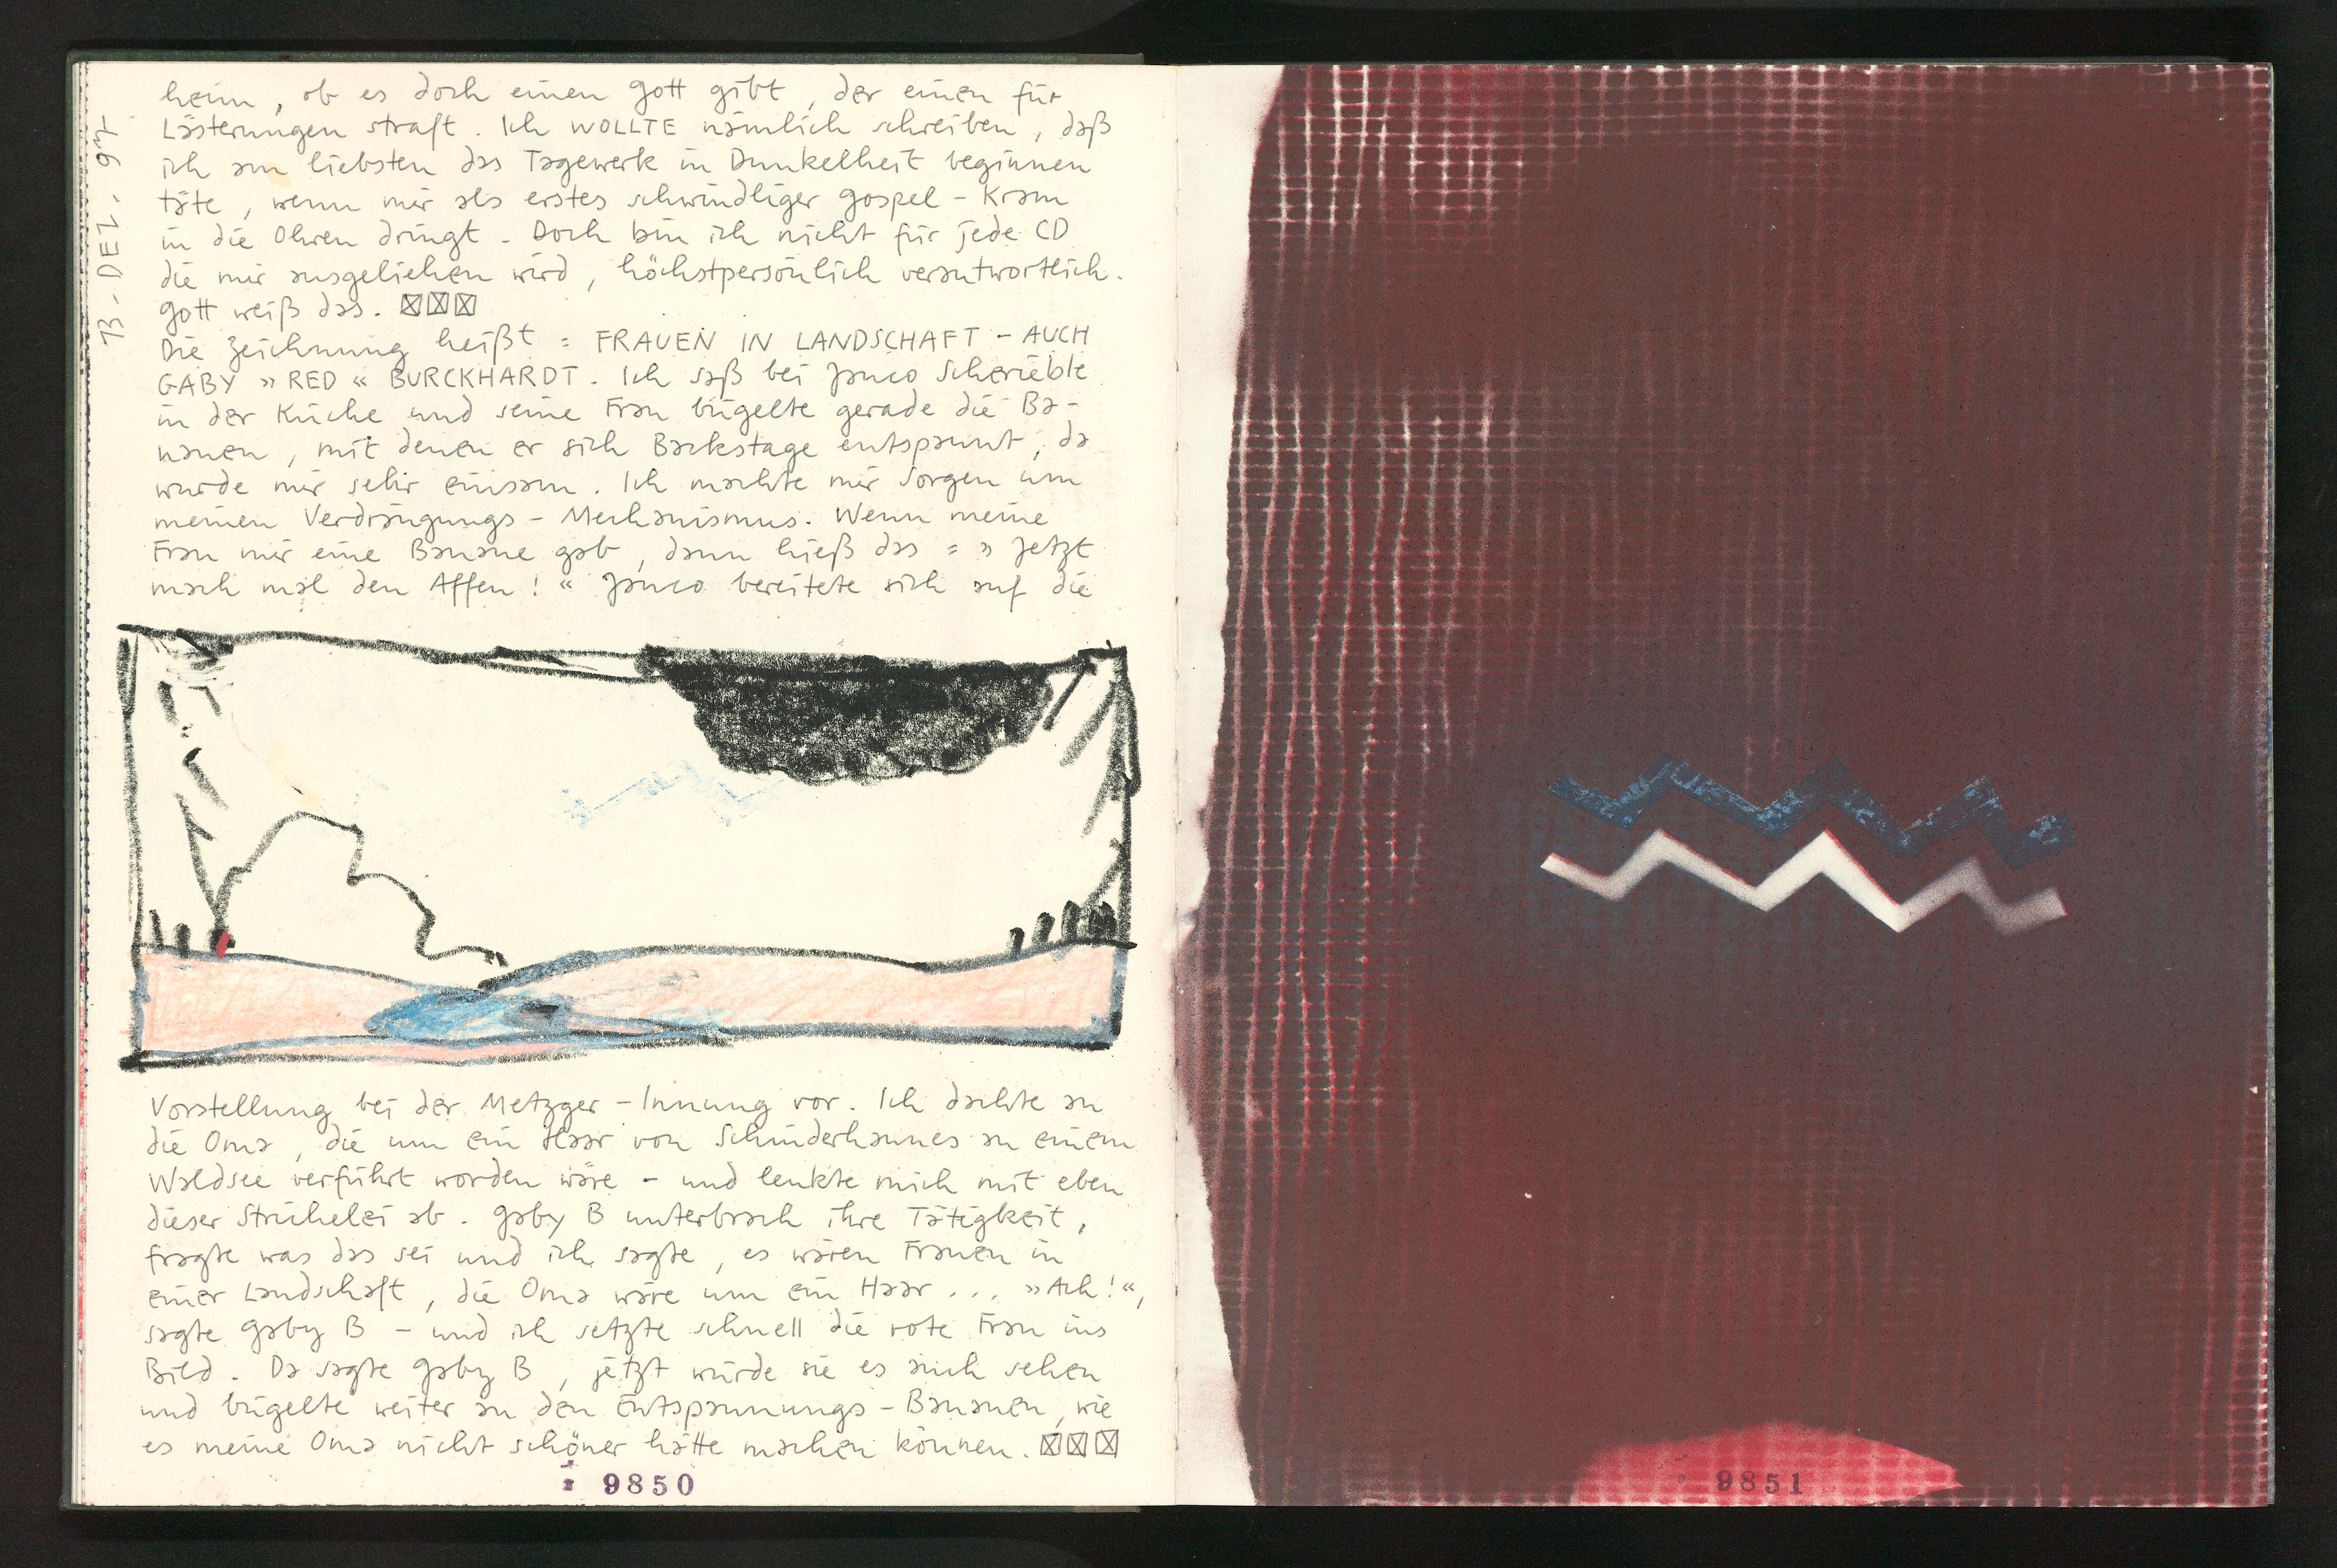 heim, ob es doch einen Gott gibt, der einen für
Lästerungen straft. Ich WOLLTE nämlich schreiben, daß
ich am liebsten das Tagewerk in Dunkelheit beginnen
täte, wenn mir als erstes schwindliger Gospel-Kram
in die Ohren dringt. Doch bin ich nicht für jede CD
die mir ausgeliehen wird, höchstpersönlich verantwortlich.
Gott weiß das. ☒☒☒
Die Zeichnung heißt = FRAUEN IN LANDSCHAFT - AUCH
GABY » RED « BURCKHARDT. Ich saß bei Janco Scherieble
in der Küche und seine Frau bügelte gerade die Ba-
nanen, mit denen er sich Backstage entspannt, da
wurde mir sehr einsam. Ich machte mir Sorgen um
meinen Verdrängungs-Mechanismus. Wenn meine
Frau mir eine Banane gab, dann hieß das = » Jetzt
mach mal den Affen! « Janco bereitete sich auf die
Vorstellung bei der Metzger-Innung vor. Ich dachte an
die Oma, die um ein Haar von Schinderhannes an einem
Waldsee verführt worden wäre - und lenkte mich mit eben
dieser Strichelei ab. Gaby B unterbrach ihre Tätigkeit,
fragte was das sei und ich sagte, es wären Frauen in
einer Landschaft, die Oma wäre um ein Haar ... »Ach!«,
sagte Gaby B - und ich setzte schnell die rote Frau ins
Bild. Da sagte Gaby B, jetzt würde sie es auch sehen
und bügelte weiter an den Entspannungs-Bananen, wie
es meine Oma nicht schöner hätte machen können. ☒☒☒
13. DEZ. 97
9850
9851